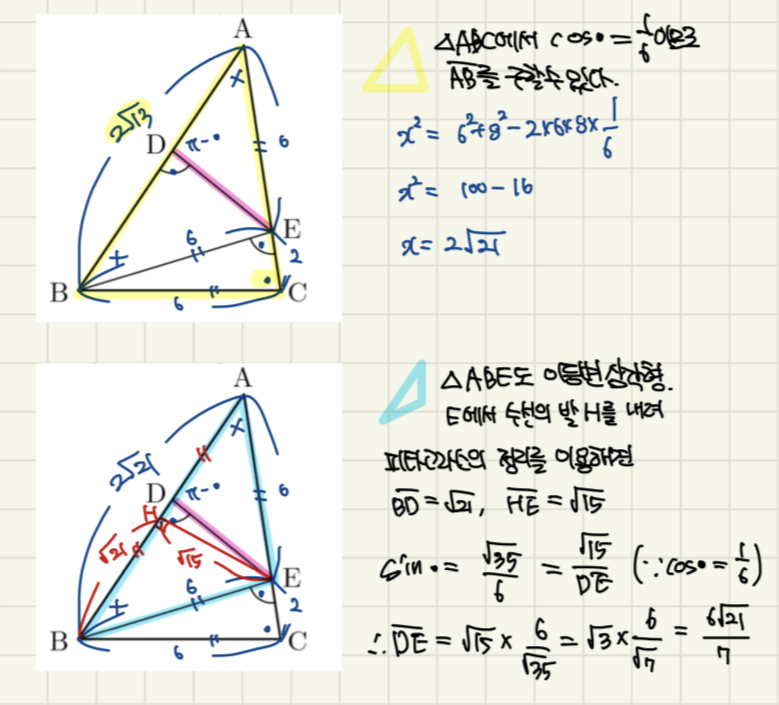 A
2√13
D
π-•
×
6
E
6
×
2
B
6
C
△ABC에서 cos• = 1/6 이므로
AB를 구할 수 있다.
x² = 6²+8²-2×6×8×1/6
x² = 100-16
x = 2√21
A
2√21
×
D
π-•
6
H
√21
√15
E
6
×
2
B
6
C
△ABE도 이등변삼각형.
E에서 수선의 발 H를 내려
피타고라스의 정리를 이용하면
BD = √21, HE = √15
sin• = √35/6 = √15/DE (∵cos• = 1/6)
∴ DE = √15 × 6/√35 = √3 × 6/√7 = 6√21/7